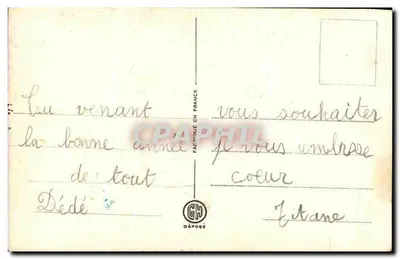 En venant vous souhaiter
la bonne année je vous embrase
de tout coeur
Dédé
FABRIQUÉ EN FRANCE
CPAPHIL
DÉPOSÉ